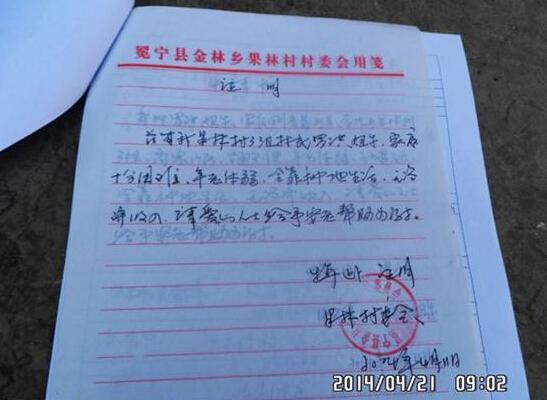 冕宁县金林乡果林村村委会用笺
证明
兹有我果林村3组村民罗洪姐牛，家庭
十分困难，年老体弱，全靠种地生活，无经
济收入，请爱心人士给予安老帮助为谢。
特此证明
果林村委会
2014/04/21 09:02